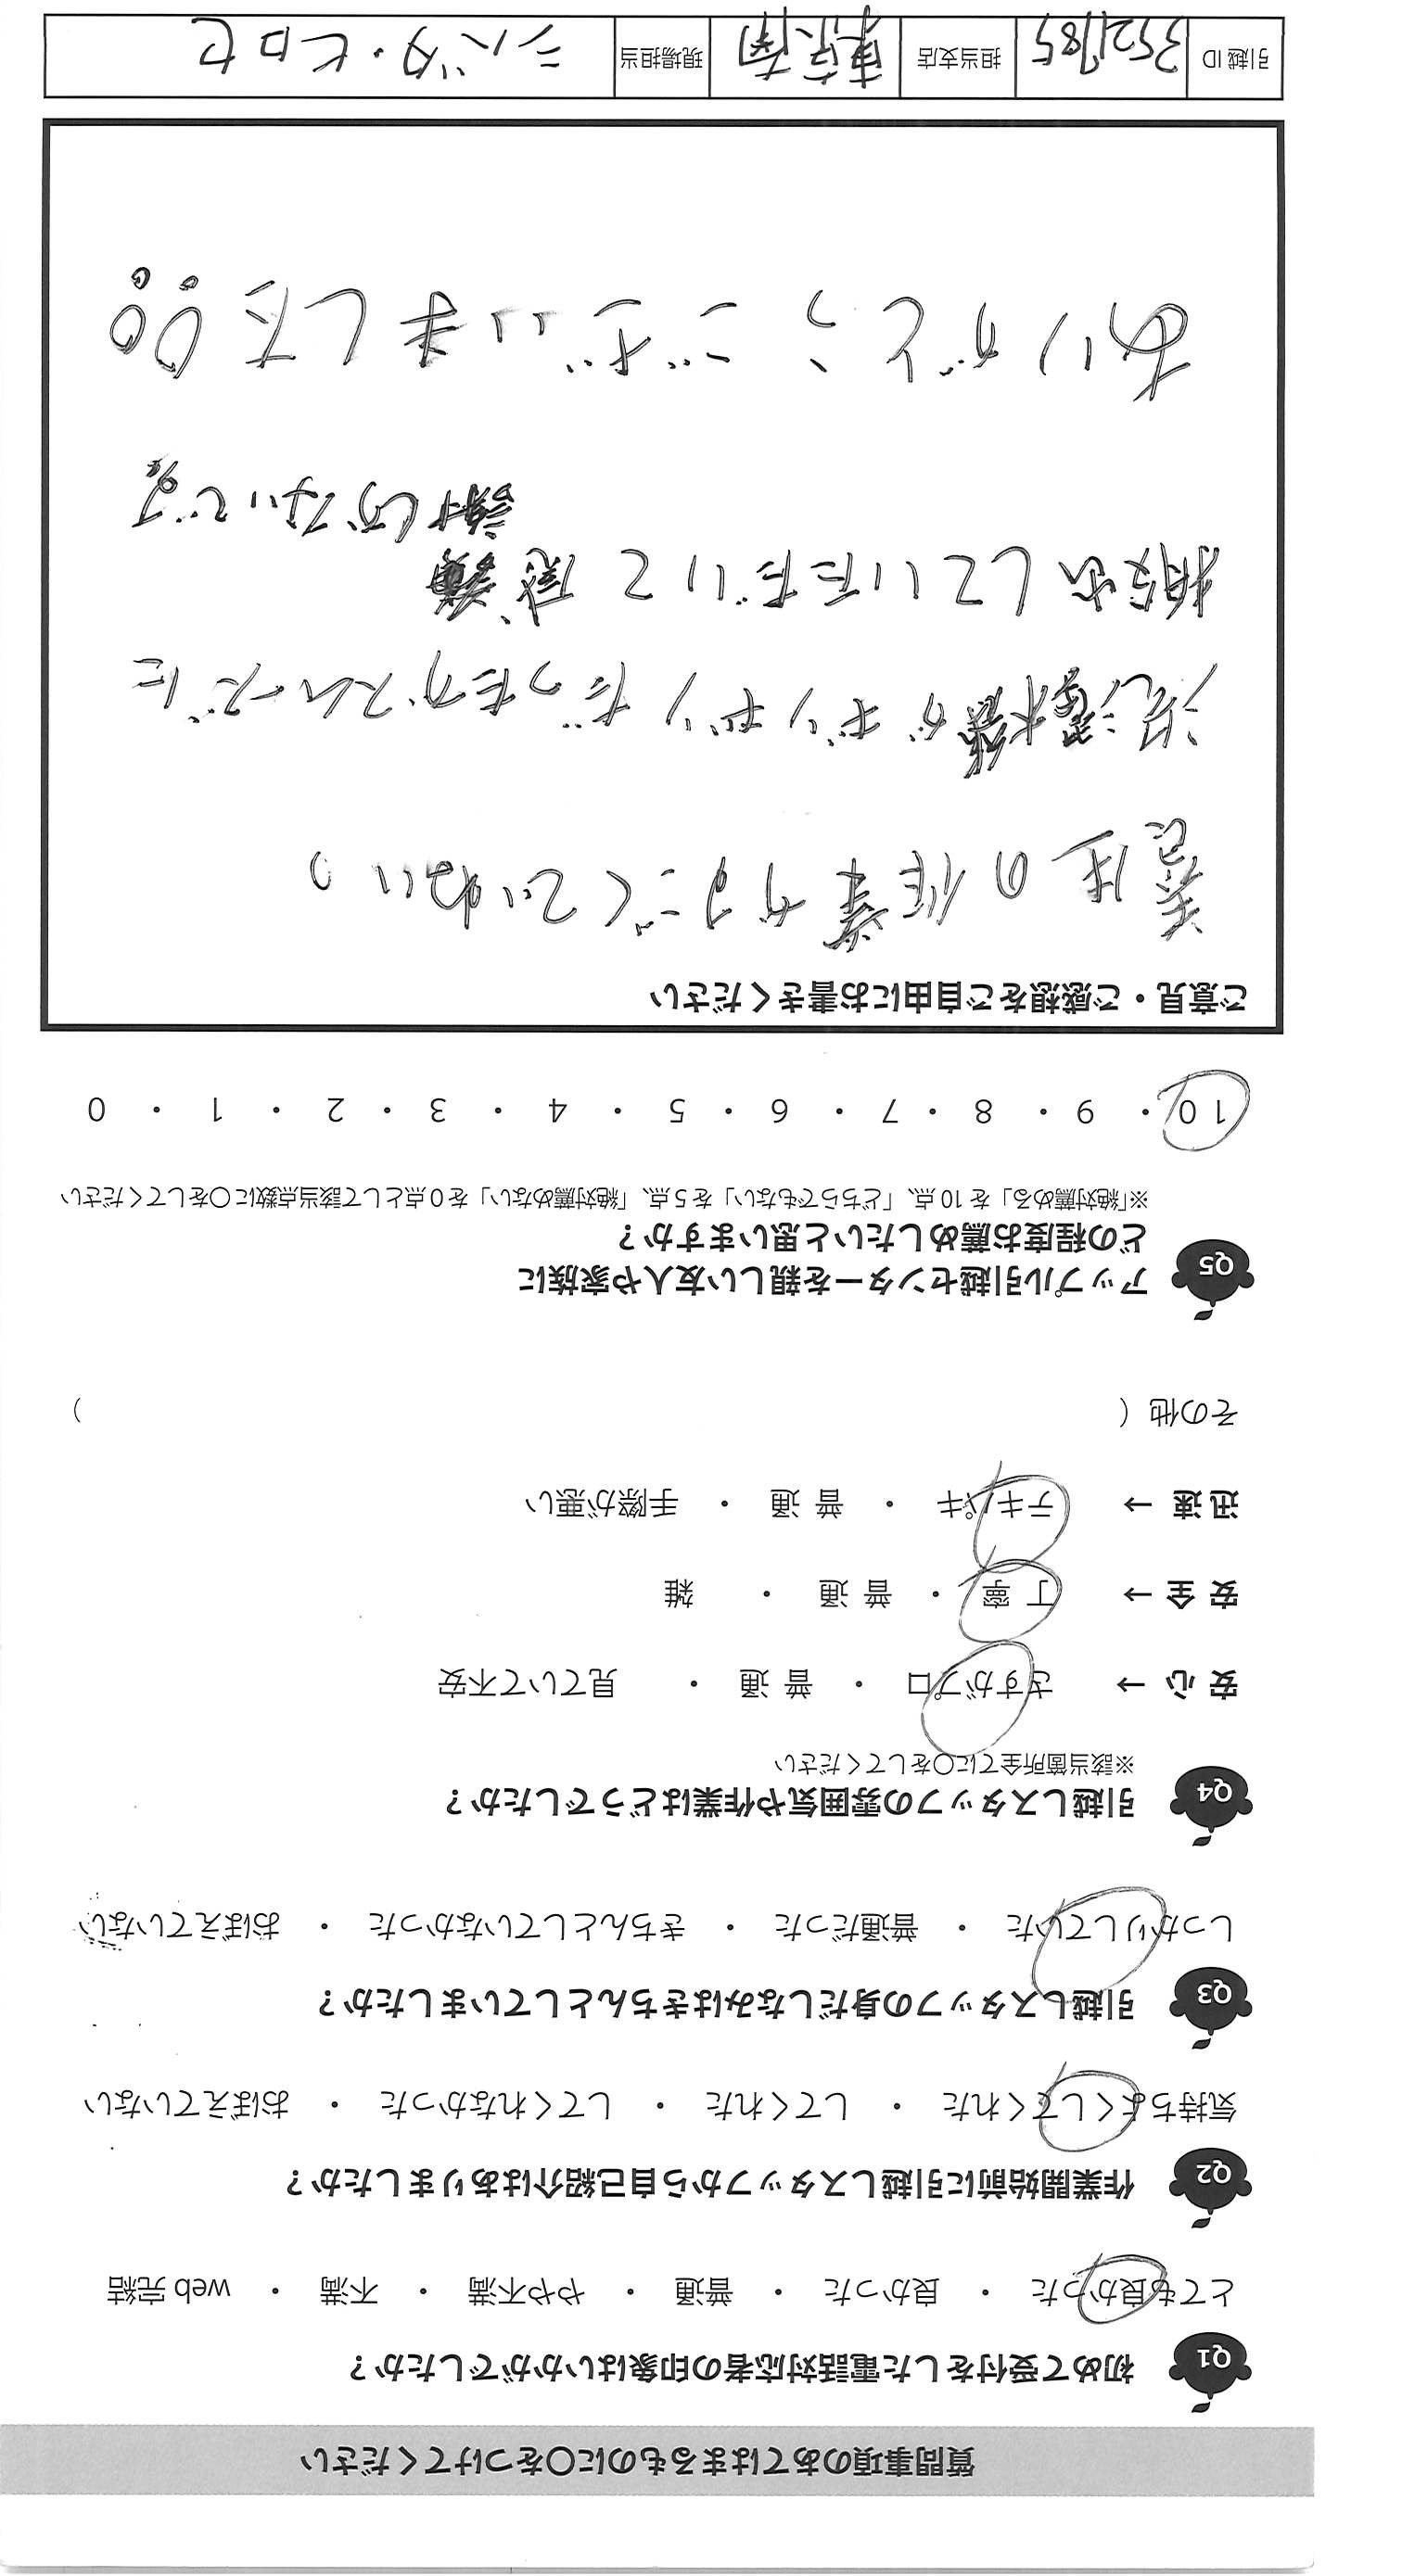 質問事項のあてはまるものに〇をつけてください
Q1 初めて受付をした電話対応者の印象はいかがでしたか？
とても良かった ・ 良かった ・ 普通 ・ やや不満 ・ 不満 ・ web 完結
Q2 作業開始前に引越しスタッフから自己紹介はありましたか？
気持ちよくしてくれた ・ してくれた ・ してくれなかった ・ おぼえていない
Q3 引越しスタッフの身だしなみはきちんとしていましたか？
しっかりしていた ・ 普通だった ・ きちんとしていなかった ・ おぼえていない
Q4 引越しスタッフの雰囲気や作業はどうでしたか？
※該当箇所全てに〇をしてください
安 心 → さすがプロ ・ 普 通 ・ 見ていて不安
安 全 → 丁 寧 ・ 普 通 ・ 雑
迅 速 → テキパキ ・ 普 通 ・ 手際が悪い
その他（ ）
Q5 アップル引越センターを親しい友人や家族に
どの程度お薦めしたいと思いますか？
※「絶対薦める」を 10 点、「どちらでもない」を 5 点、「絶対薦めない」を 0 点として該当点数に〇をしてください
10 ・ 9 ・ 8 ・ 7 ・ 6 ・ 5 ・ 4 ・ 3 ・ 2 ・ 1 ・ 0
ご意見・ご感想をご自由にお書きください
養生の作業がすごくていねい
洗濯機がギリギリだったがスムーズに
搬出していただいて感
謝しかないです。
ありがとうございました
引越 ID 3521785 担当支店 東京南 現場担当 シバタ・ヒロセ